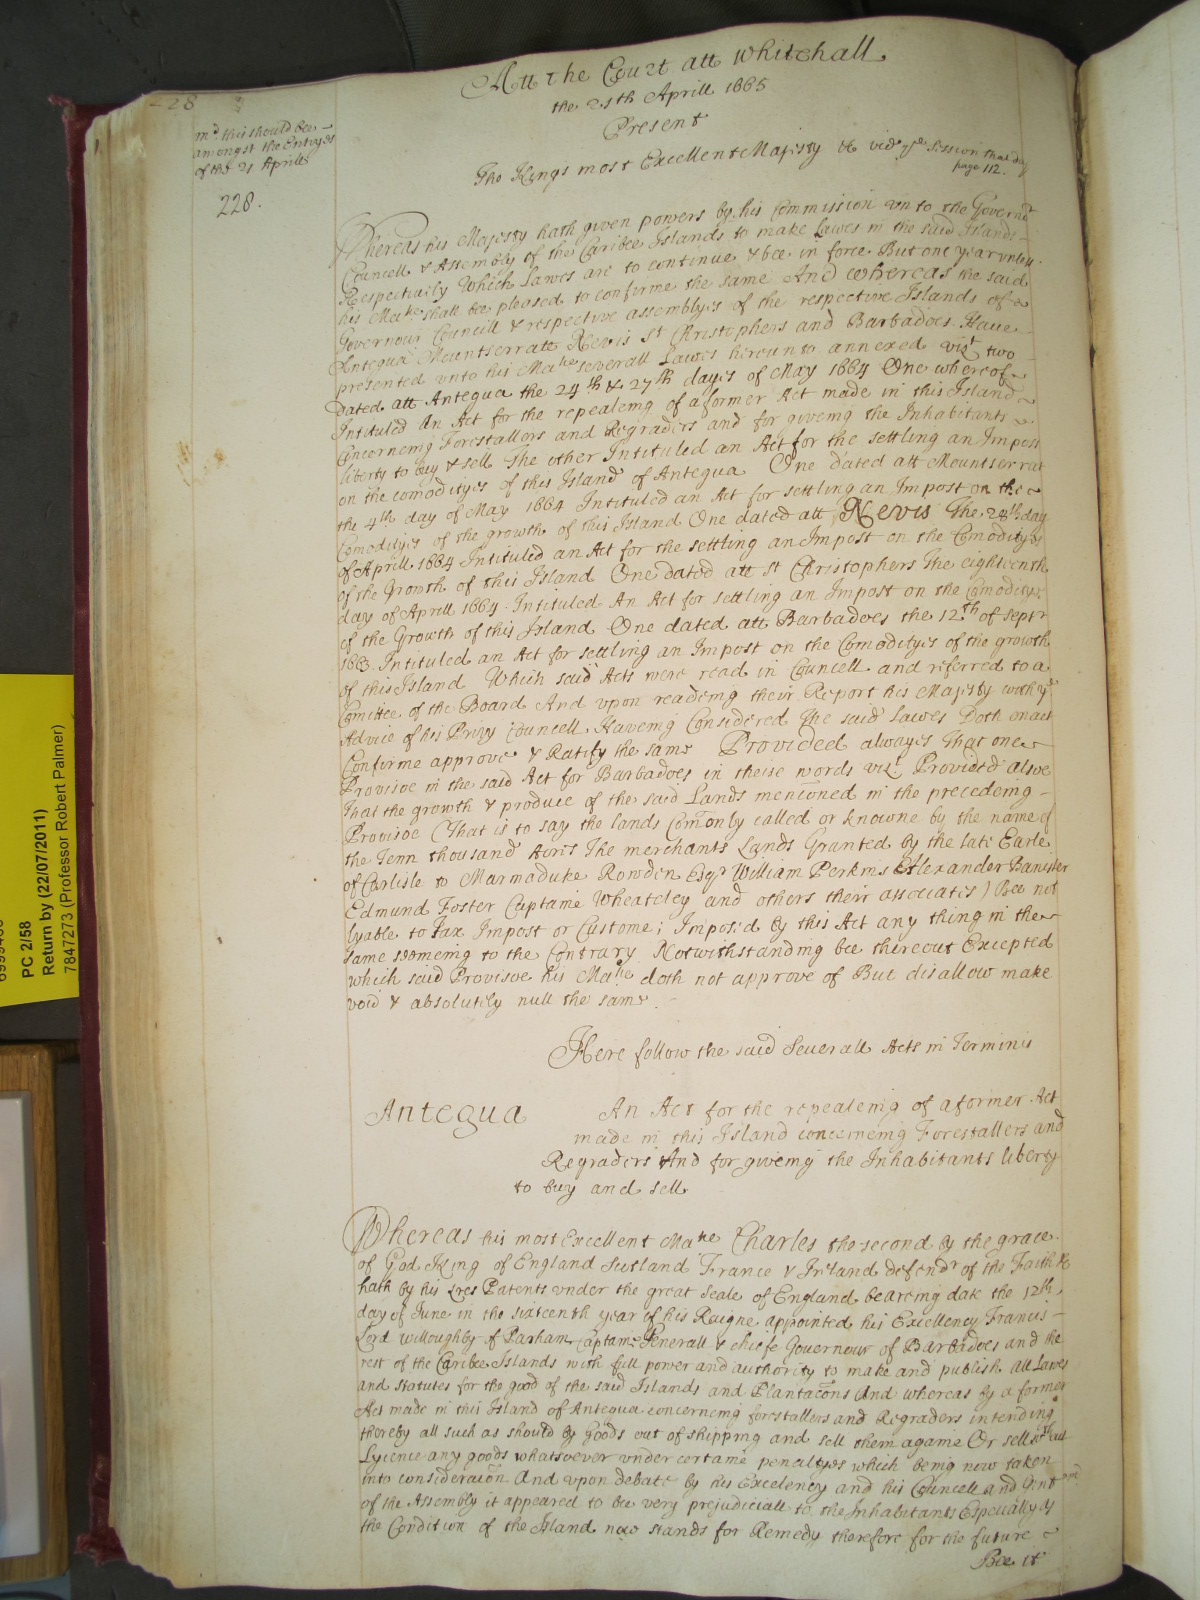 Att the Court att Whitehall
the 21th Aprill 1665
Present
The Kings most Excellent Majesty &c vide ye Session that day
page 112.
228
md this should bee
amongst the Entryes
of the 21 Aprill
228.
Whereas his Majesty hath given powers by his Commission vnto the Governr
Councell & Assembly of the Caribee Islands to make Lawes in the said Islands
Respectively Which Lawes are to continue & bee in force But one year vnless
his Matie shall bee pleased to confirme the same And whereas the said
Governour Councill & respective assemblyes of the respective Islands of
Antegua Mountserrate Nevis St Christophers and Barbadoes Haue
presented vnto his Matie severall Lawes hereunto annexed vizt two
Dated att Antegua the 24th & 27th dayes of May 1664 One whereof
Intituled An Act for the repealeing of a former Act made in this Island
Concerneing Forestallors and Regraders and for giveing the Inhabitants
liberty to buy & sell The other Intituled an Act for the settling an Impost
on the comodityes of this Island of Antegua One dated att Mountserrat
the 4th day of May 1664 Intituled an Act for settling an Impost on the
Comodityes of the growth of this Island One dated att Nevis The 28th day
of Aprill 1664 Intituled an Act for the settling an Impost on the Comodityes
of the Growth of this Island One dated att St Christophers The eighteenth
day of Aprill 1664 Intituled An Act for settling an Impost on the Comodityes
of the Growth of this Island One dated att Barbadoes the 12th of Septr
1663 Intituled an Act for settling an Impost on the Comodityes of the growth
of this Island Which said Acts were read in Councell and referred to a
Comittee of the Board And vpon readeing their Report his Majesty with ye
Advice of his Privy Councell Haveing Considered The said Lawes Doth enact
Confirme approve & Ratify the same Provided alwayes That one
Provisoe in the said Act for Barbadoes in theise words vizt Provided alsoe
That the growth & produce of the said Lands mencioned in the precedeing
Provisoe (That is to say the lands Comonly called or knowne by the name of
the Tenn thousand Acres The merchants Lands Granted by the late Earle
of Carlisle to Marmaduke Rowden Esqr William Perkins Alexander Banister
Edmund Foster Captaine Wheateley and others their associates) Bee not
lyable to Tax Impost or Custome; Imposed by this Act any thing in the
same seemeing to the Contrary Notwithstanding bee thereout Excepted
which said Provisoe his Matie doth not approve of But disallow make
void & absolutely null the same
Here follow the said Severall Acts in Terminis
Antegua An Act for the repealeing of a former Act
made in this Island concerneing Forestallers and
Regraders And for giveing the Inhabitants liberty
to buy and sell
Whereas his most Excellent Matie Charles the second by the grace
of God King of England Scotland France & Ireland defendr of the Faith &c
hath by his Lres Patents vnder the great Seale of England beareing date the 12th
day of June in the sixteenth year of his Raigne appointed his Excellency Francis
Lord Willoughby of Parham Captaine Generall & chiefe Governour of Barbadoes and the
rest of the Caribee Islands with full power and authority to make and publish all Lawes
and statutes for the good of the said Islands and Plantacons And whereas by a former
Act made in this Island of Antegua concerneing forestallers and Regraders intending
thereby all such as should by Goods out of shipping and sell them againe Or sell without
Lycence any goods whatsoever vnder certaine penaltyes which being now taken
into consideracion And vpon debate by his Excelency and his Councell and Gent
of the Assembly it appeared to bee very prejudiciall to the Inhabitants Especially as
the Condition of the Island now stands for Remedy therefore for the future
Bee it
PC 2/58
Return by (22/07/2011)
7847273 (Professor Robert Palmer)